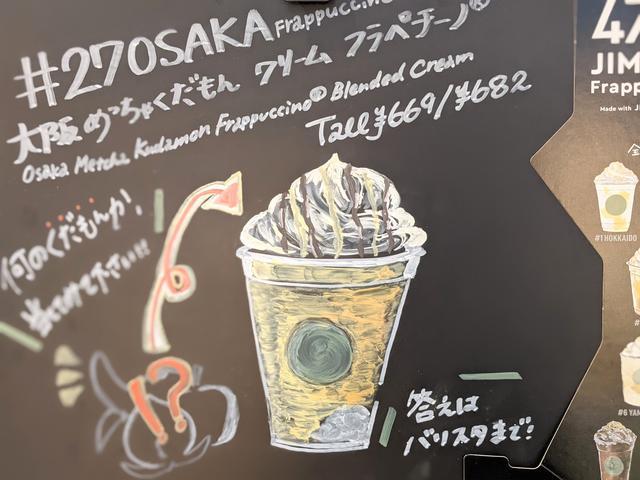 #27OSAKA Frappuccino
大阪 めっちゃくだもん クリーム フラペチーノ®
Osaka Metcha Kudamon Frappuccino® Blended Cream
Tall ¥669/¥682
何のくだもんか、
当ててみて下さい!!
!?
答えは
バリスタまで!
47
JIM
Frapp
Made with J
#1 HOKKAIDO
#6 YAM